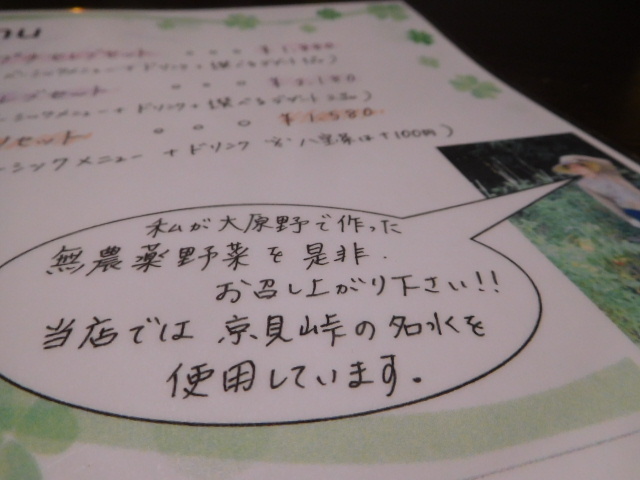 nu
セット ¥1,880
ーシックメニュー + ドリンク + 選べるデザート
セット ¥2,180
ーシックメニュー + ドリンク + 選べるデザート2品)
セット ¥1,580
ーシックメニュー + ドリンク ※八宝菜は+100円)
私が大原野で作った
無農薬野菜を是非.
お召し上がり下さい!!
当店では 京見峠の名水を
使用しています.